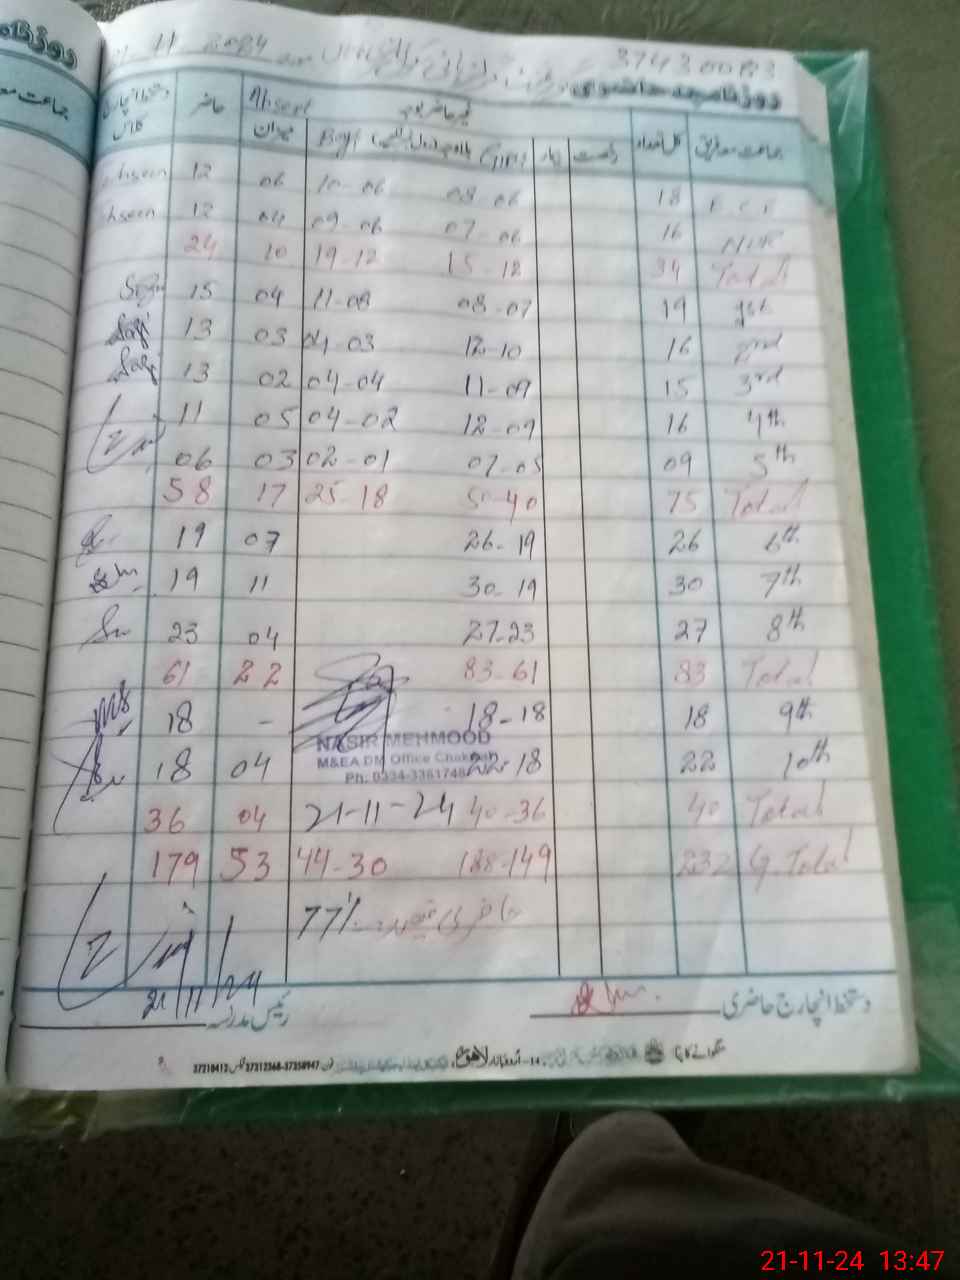 21-11-2024 37430083
روزنامچہ حاضری
جماعت معہ فریق کل تعداد رخصت بیمار Girls Boys غیر حاضر Absent میزان حاضر دستخط انچارج کلاس
12 06 10-06 08-06 18 E C E
12 04 09-06 07-06 16 NUR
24 10 19-12 15-12 34 Total
15 04 11-08 08-07 19 1st
13 03 04-03 12-10 16 2nd
13 02 04-04 11-09 15 3rd
11 05 04-02 12-09 16 4th
06 03 02-01 07-05 09 5th
58 17 25-18 50-40 75 Total
19 07 26-19 26 6th
19 11 30-19 30 7th
23 04 27-23 27 8th
61 22 83-61 83 Total
18 - 18-18 18 9th
18 04 22-18 22 10th
NASIR MEHMOOD
M&EA DM Office Chakwal
Ph. 0334-3361748
36 04 21-11-24 40-36 40 Total
179 53 44-30 188-149 232 G.Total
77% حاضری فیصد
21/11/24
رئیس مدرسہ دستخط انچارج حاضری
لاہور
37210412 37312368-37358947
21-11-24 13:47